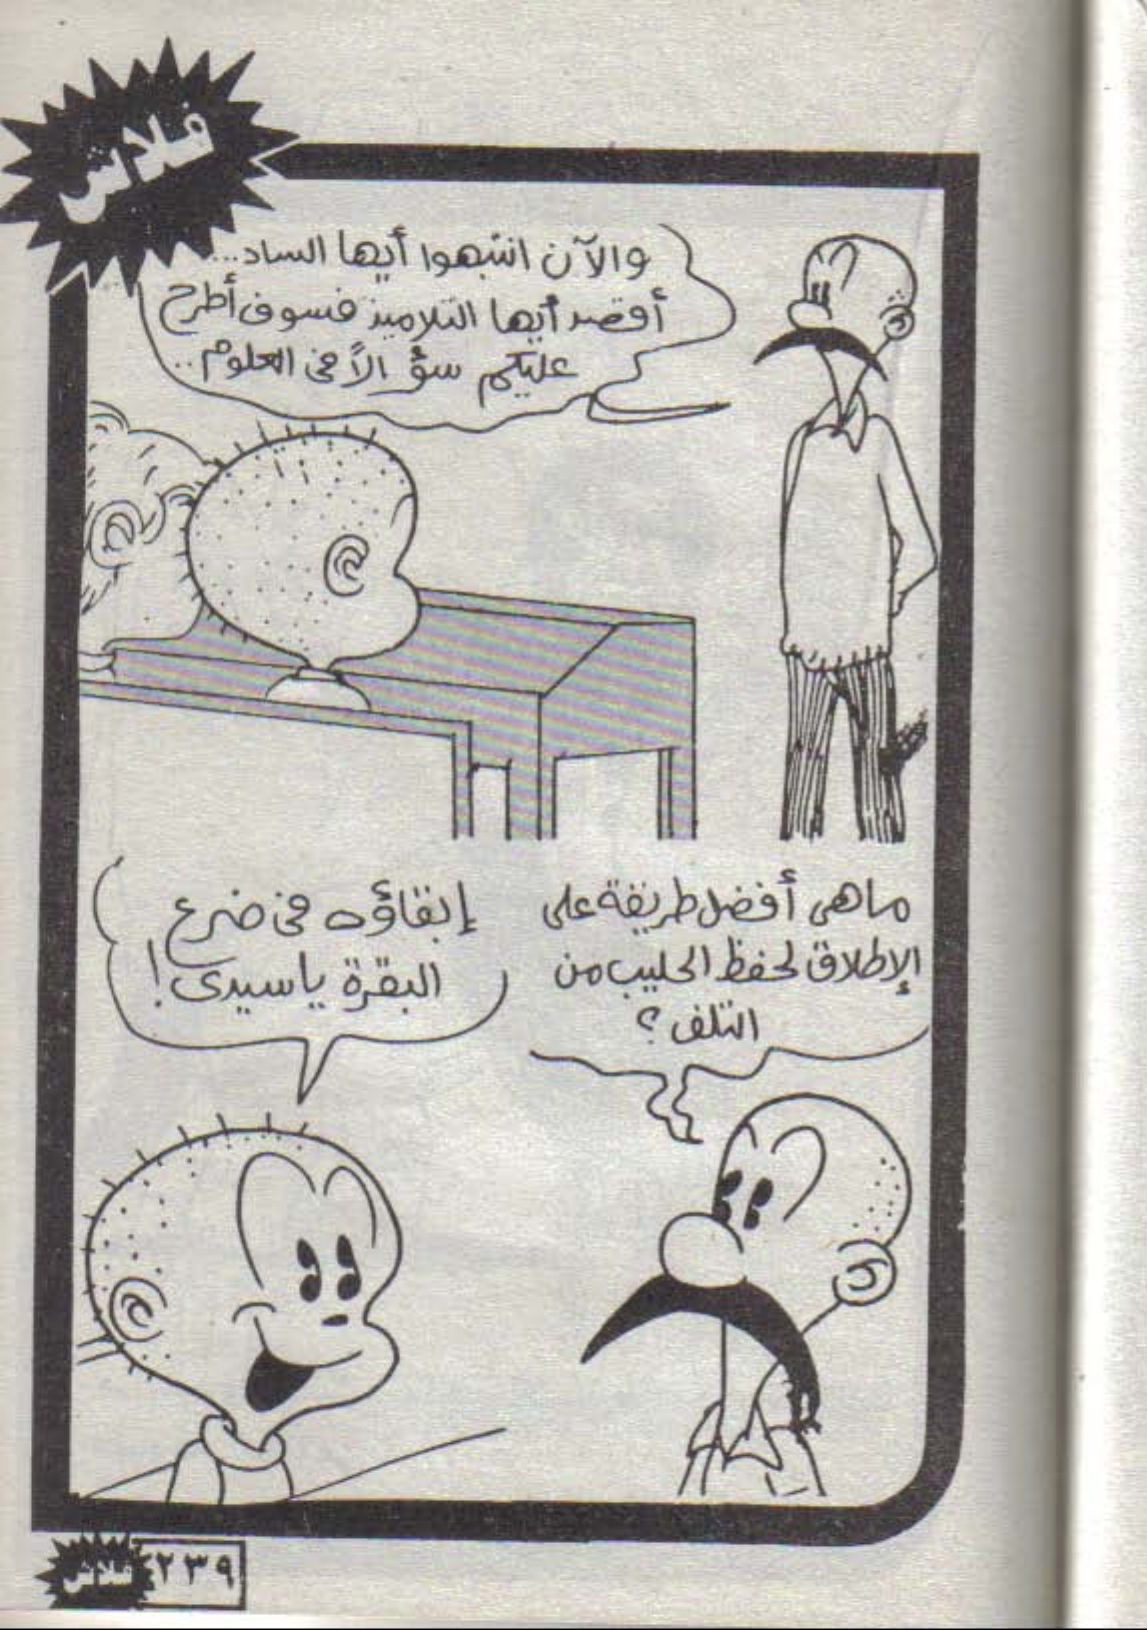 فلاش
والآن انتبهوا أيها الساد...
أقصد أيها التلاميذ فسوف أطرح
عليكم سؤالاً فى العلوم..
ماهى أفضل طريقة على
الإطلاق لحفظ الحليب من
التلف؟
إبقاؤه فى ضرع
البقرة ياسيدى!
فلاش ٢٣٩